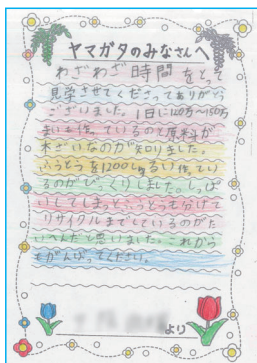 ヤマガタのみなさんへ
わざわざ時間をとって
見学させてくださってありがとう
ございました。1日に120万〜150万
まいも作っているので原料が
木ざいなのが知りました。
ふうとうを1200しゅるい作ってい
るのがびっくりしました。しっぱ
いしてしまっふうとうも分けて
リサイクルまでしているのがた
いへんだと思いました。これから
もがんばってください。
より